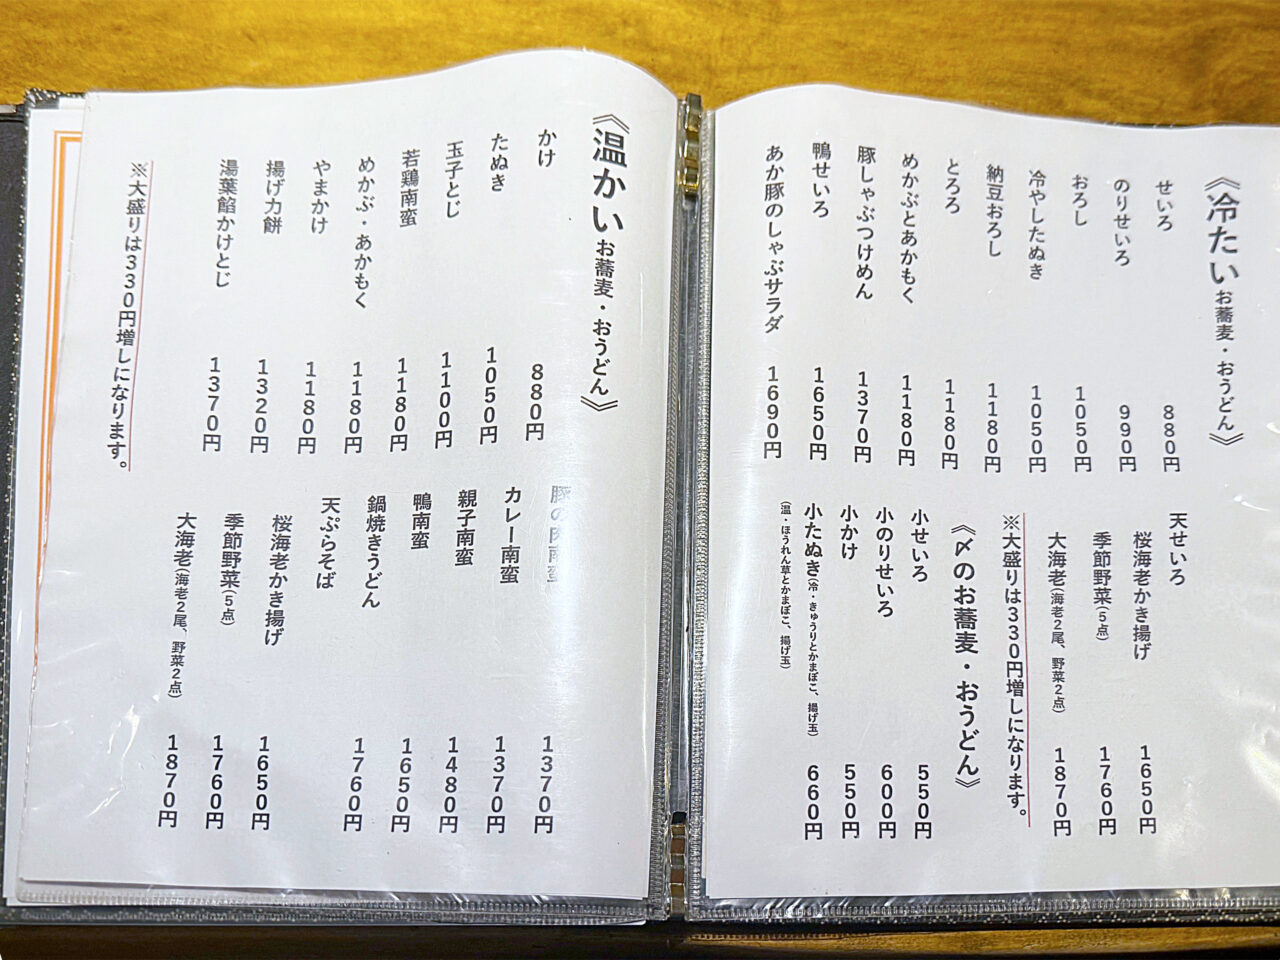 《冷たいお蕎麦・おうどん》
せいろ 880円
のりせいろ 990円
おろし 1050円
冷やしたぬき 1050円
納豆おろし 1180円
とろろ 1180円
めかぶとあかもく 1180円
豚しゃぶつけめん 1370円
鴨せいろ 1650円
あか豚のしゃぶサラダ 1690円
天せいろ
桜海老かき揚げ 1650円
季節野菜(5点) 1760円
大海老(海老2尾、野菜2点) 1870円
※大盛りは330円増しになります。
《〆のお蕎麦・おうどん》
小せいろ 550円
小のりせいろ 600円
小かけ 550円
小たぬき(冷・きゅうりとかまぼこ、揚げ玉) 660円
(温・ほうれん草とかまぼこ、揚げ玉)
《温かいお蕎麦・おうどん》
かけ 880円
たぬき 1050円
玉子とじ 1100円
若鶏南蛮 1180円
めかぶ・あかもく 1180円
やまかけ 1180円
揚げ力餅 1320円
湯葉餡かけとじ 1370円
※大盛りは330円増しになります。
豚の肉南蛮 1370円
カレー南蛮 1370円
親子南蛮 1480円
鴨南蛮 1650円
鍋焼きうどん 1760円
天ぷらそば
桜海老かき揚げ 1650円
季節野菜(5点) 1760円
大海老(海老2尾、野菜2点) 1870円